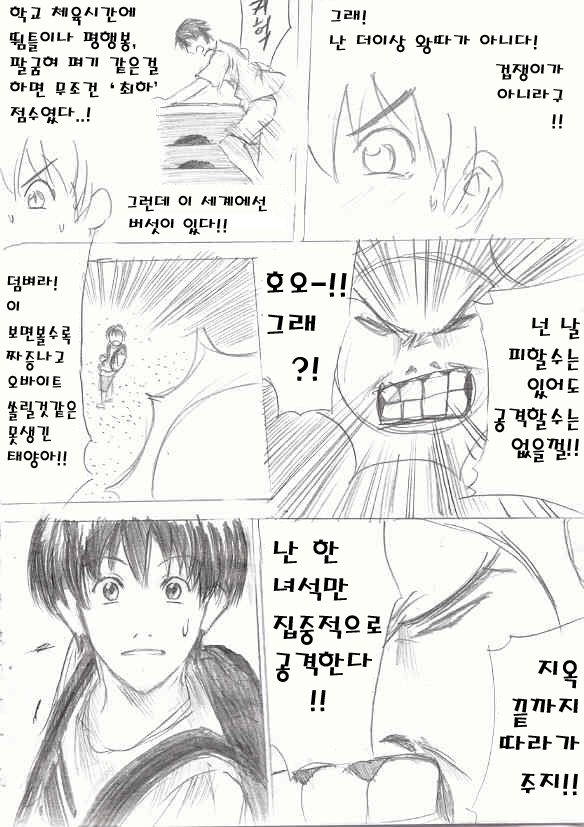 학교 체육시간에
뜀틀이나 평행봉,
팔굽혀 펴기 같은걸
하면 무조건 '최하'
점수였다..!
그런데 이 세계에선
버섯이 있다!!
그래!
난 더이상 왕따가 아니다!
겁쟁이가
아니라구
!!
덤벼라!
이
보면볼수록
짜증나고
오바이트
쏠릴것같은
못생긴
태양아!!
호오-!!
그래
?!
넌 날
피할수는
있어도
공격할수는
없을껄!!
난 한
녀석만
집중적으로
공격한다
!!
지옥
끝까지
따라가
주지!!